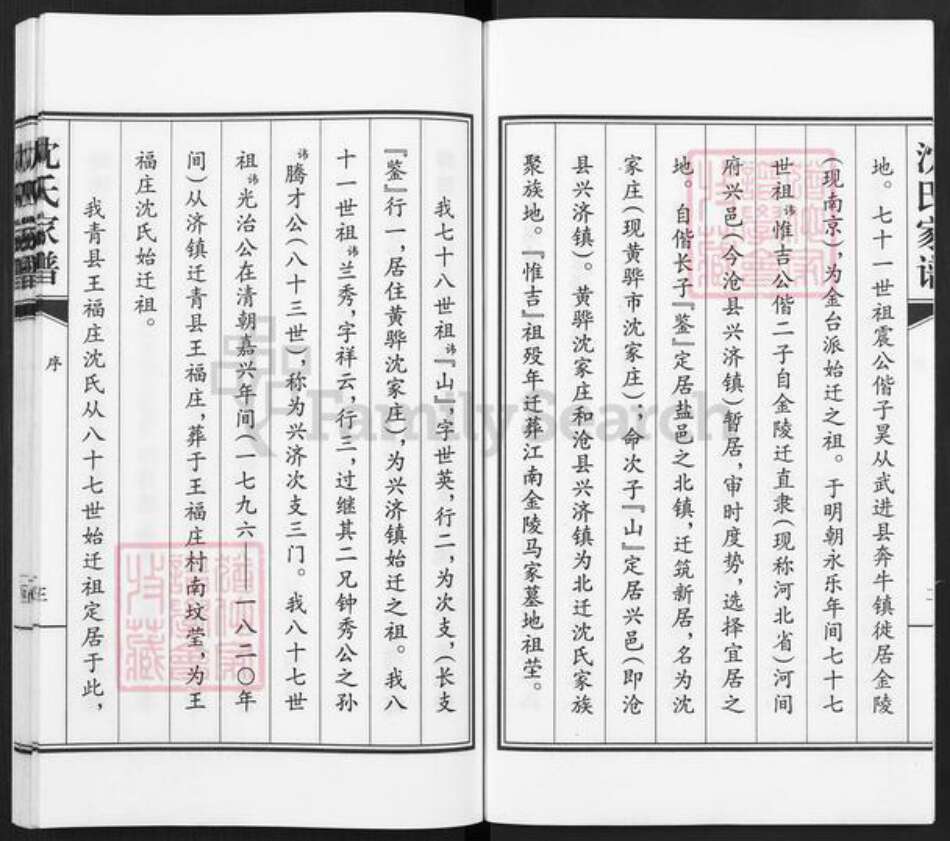 地。七十一世祖震公偕子昊从武进县奔牛镇徙居金陵
（现南京），为金台派始迁之祖。于明朝永乐年间七十七
世祖讳惟吉公偕二子自金陵迁直隶（现称河北省）河间
府兴邑（今沧县兴济镇）暂居，审时度势，选择宜居之
地。自偕长子『鉴』定居盐邑之北镇，迁筑新居，名为沈
家庄（现黄骅市沈家庄），命次子『山』定居兴邑（即沧
县兴济镇）。黄骅沈家庄和沧县兴济镇为北迁沈氏家族
聚族地。『惟吉』祖殁年迁葬江南金陵马家墓地祖茔。
我七十八世祖讳『山』，字世英，行二，为次支，（长支
『鉴』行一，居住黄骅沈家庄），为兴济镇始迁之祖。我八
十一世祖讳兰秀，字祥云，行三，过继其二兄钟秀公之孙
讳腾才公（八十三世），称为兴济次支三门。我八十七世
祖讳光治公在清朝嘉兴年间（一七九六—一八二〇年
间）从济镇迁青县王福庄，葬于王福庄村南坟莹，为王
福庄沈氏始迁祖。
我青县王福庄沈氏从八十七世始迁祖定居于此，
沈氏家谱
序
三
FamilySearch